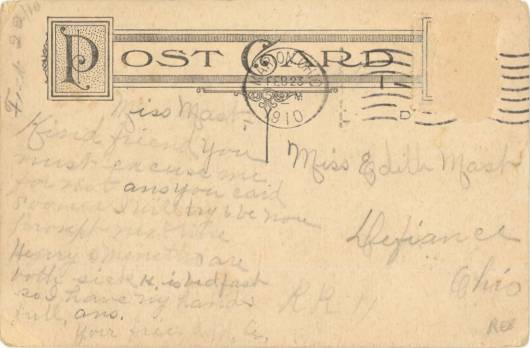 Feb 22/10
POST CARD
FEB 23
1910
D
Miss Mast
Kind friend you
must excuse me
for not ans you card
sooner I will try & be more
prompt next time
Henry & are
both sick H. is bedfast
so I have my hands
full, ans.
Your friend
Miss Edith Mast
Defiance
Ohio
RR 11